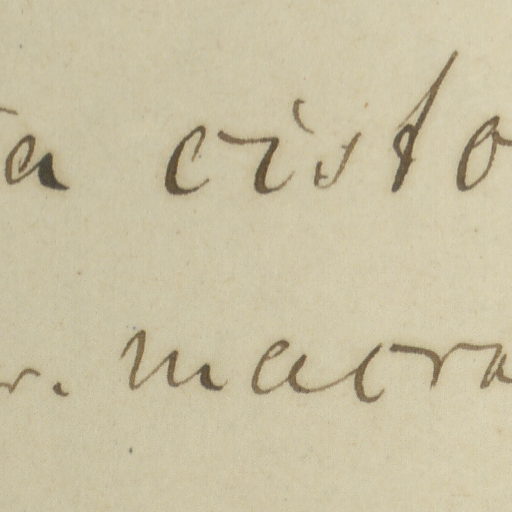 a cisto
r. macro